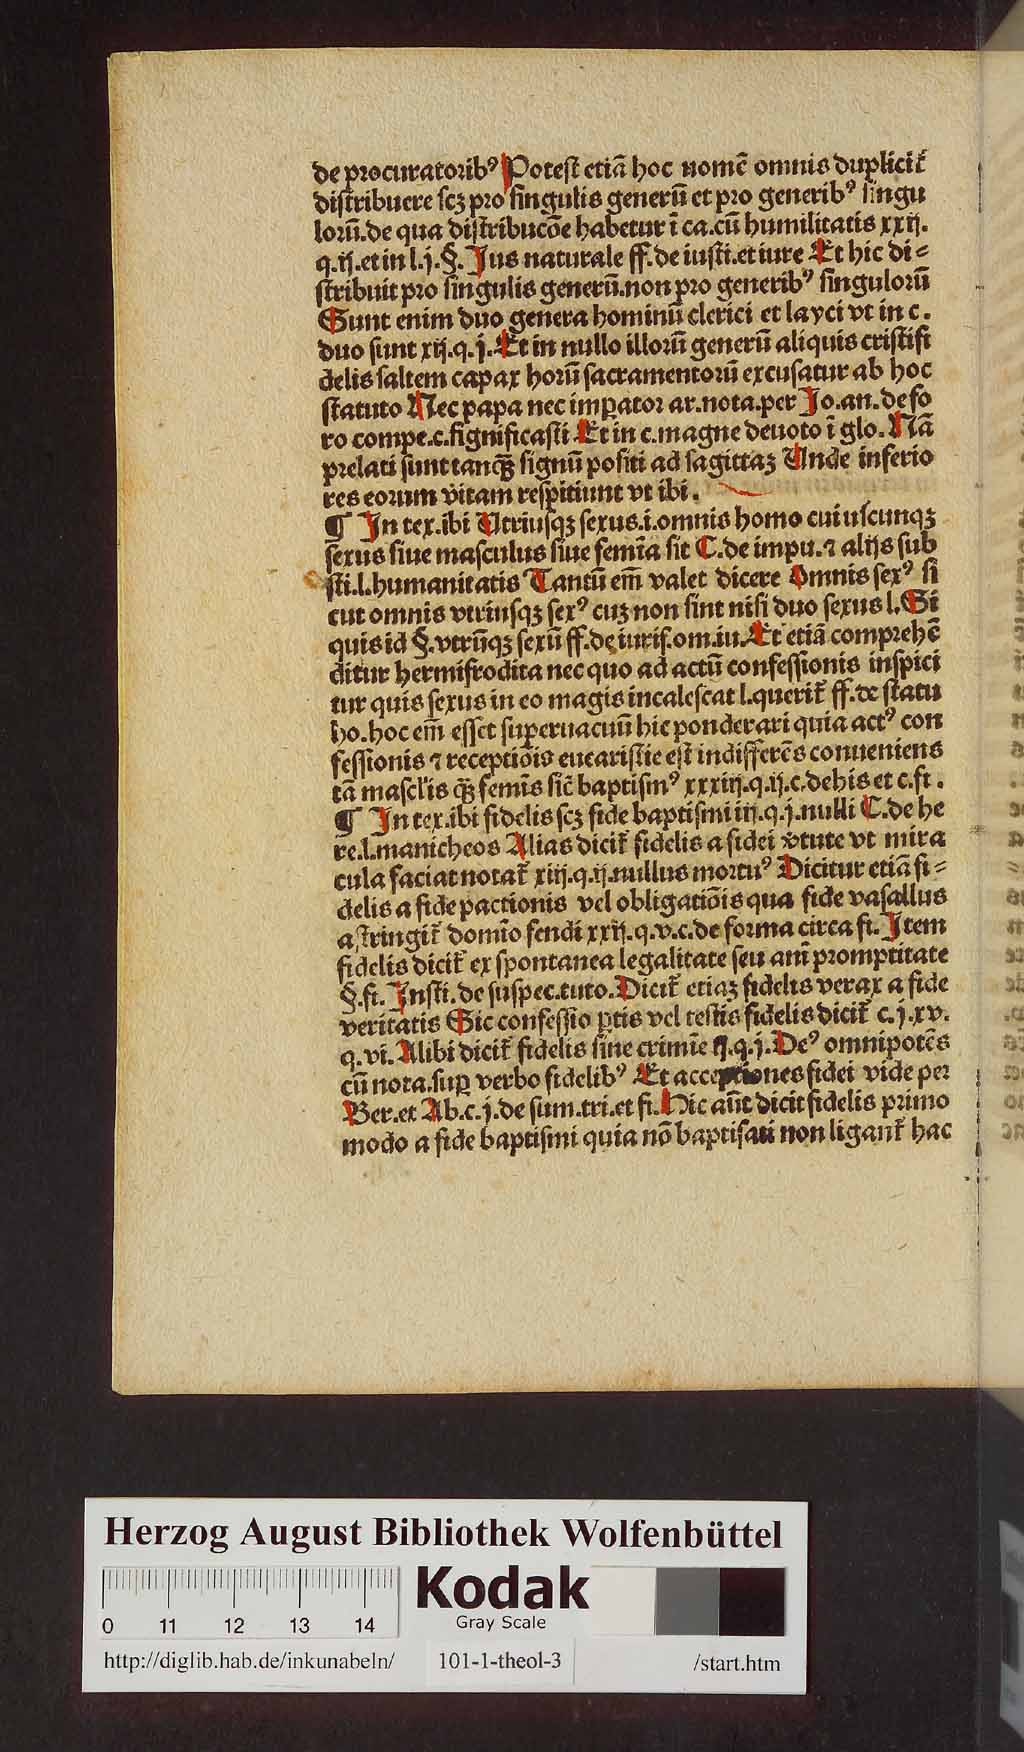 de procuratoribꝰ Potest etiã hoc nomẽ omnis duplicit̃
distribuere scꝫ pro singulis generũ et pro generibꝰ singu
lorũ.de qua distribucõe habetur ĩ ca.cũ humilitatis xxij.
q.ij.et in l.j.§. Jus naturale ff.de iusti.et iure Et hic di⸗
stribuit pro singulis generũ.non pro generibꝰ singulorũ
Sunt enim duo genera hominũ clerici et layci vt in c.
duo sunt xij.q.j.Et in nullo illorũ generũ aliquis cristifi
delis saltem capax horũ sacramentorũ excusatur ab hoc
statuto Nec papa nec imꝑator ar.nota.per Jo.an.de fo
ro compe.c.significasti Et in c.magne deuoto ĩ glo.Nã
prelati sunt tanqꝫ signũ positi ad sagittaꝫ Unde inferio
res eorum vitam respitiunt vt ibi.
¶ Jn tex.ibi Utriusqꝫ sexus.i.omnis homo cuiuscunqꝫ
sexus siue masculus siue femĩa sit C.de impu.⁊ alijs sub
sti.l.humanitatis Tantũ em̃ valet dicere Omnis sexꝰ si
cut omnis vtriusqꝫ sexꝰ cuꝫ non sint nisi duo sexus l.Si
quis id §.vtrũqꝫ sexũ ff.de iuris.om.iu.Et etiã comprehẽ
ditur hermifrodita nec quo ad actũ confessionis inspici
tur quis sexus in eo magis incalescat l.querit̃ ff.de statu
ho.hoc em̃ esset superuacuũ hic ponderari quia actꝰ con
fessionis ⁊ receptiõis eucaristie est indifferẽs conueniens
tã mascl'is qꝫ femĩs sic̃ baptismꝰ xxxiij.q.ij.c.de his et c.fi.
¶ Jn tex.ibi fidelis scꝫ fide baptismi iij.q.j.nulli C.de he
re.l.manicheos Alias dicit̃ fidelis a fidei v̾tute vt mira
cula faciat notat̃ xiij.q.ij.nullus mortuꝰ Dicitur etiã fi⸗
delis a fide pactionis vel obligatiõis qua fide vasallus
astringit̃ domĩo fendi xxij.q.v.c.de forma circa fi.Jtem
fidelis dicit̃ ex spontanea legalitate seu anĩ promptitate
§.fi.Jnsti.de suspec.tuto.Dicit̃ etiaꝫ fidelis verax a fide
veritatis Sic confessio ꝑtis vel testis fidelis dicit̃ c.j.xv.
q.vi.Alibi dicit̃ fidelis sine crimĩe ij.q.j.Deꝰ omnipotẽs
cũ nota.suꝑ verbo fidelibꝰ Et acceptiones fidei vide per
Ber.et Ab.c.j.de sum.tri.et fi.Hic aũt dicit fidelis primo
modo a fide baptismi quia nõ baptisati non ligant̃ hac
Herzog August Bibliothek Wolfenbüttel
0 11 12 13 14
Kodak
Gray Scale
http://diglib.hab.de/inkunabeln/ 101-1-theol-3 /start.htm